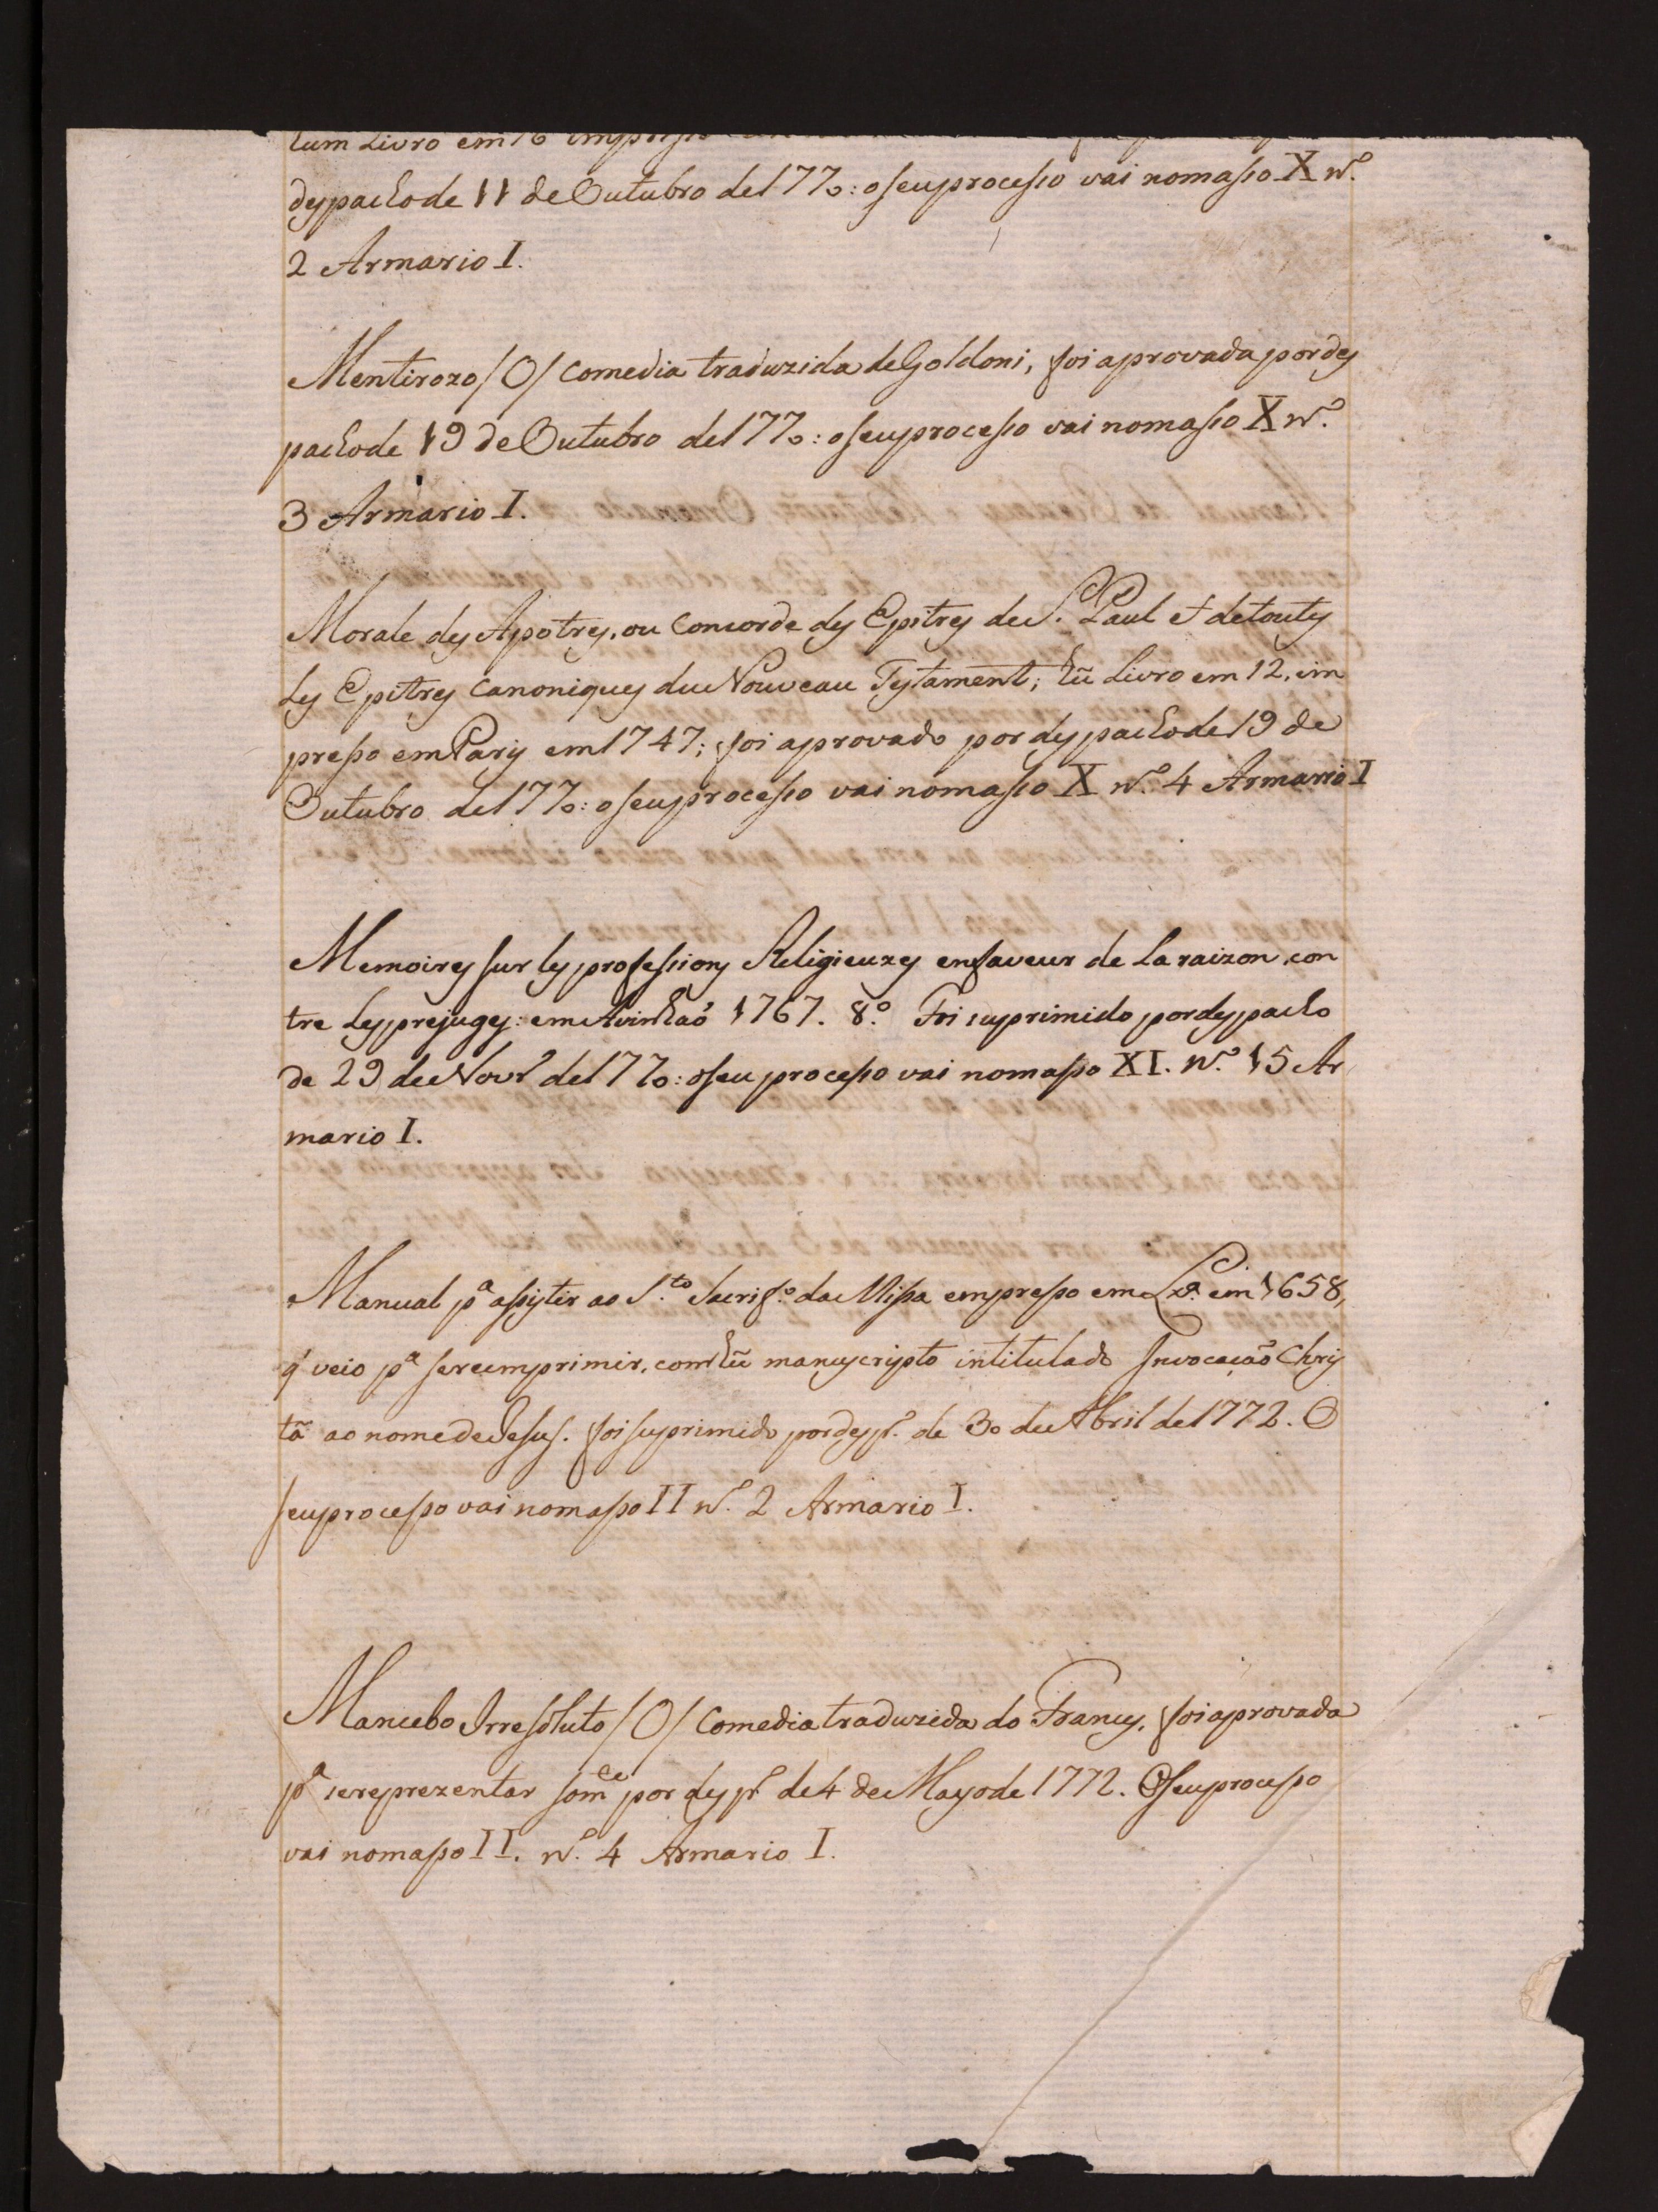 hum Livro em 16
despacho de 11 de Outubro de 1770: o seu processo vai no masso X Nº.
2 Armario I.
Mentirozo /O/ Comedia traduzida de Goldoni, foi aprovada por des
pacho de 19 de Outubro de 1770: o seu processo vai no masso X Nº.
3 Armario I.
Morale des Apotres, ou Concorde des Epitres de S. Paul et de toutes
Les Epitres Canoniques du Nouveau Testament; hũ Livro em 12. im
presso em Paris em 1747; foi aprovado por despacho de 19 de
Outubro de 1770: o seu processo vai no masso X Nº. 4 Armario I
Memoires sur les professions Religieuzes en faveur de La raizon, con
tre Les prejuges: em Avinhaõ 1767. 8.º Foi suprimido por despacho
de 29 de Novr.º de 1770: o seu processo vai no masso XI. Nº. 15 Ar
mario I.
Manual pª assistir ao S.to Sacrif.º da Missa empresso em Lxª. em 1658,
q' veio pª se reemprimir, com hũ manuscripto intitulado Invocaçaõ Chris
tã ao nome de Jesus. foi suprimido por desp.º de 30 de Abril de 1772. O
seu processo vai no masso II Nº. 2 Armario I.
Mancebo Irresoluto /O/ Comedia traduzida do Frances, foi aprovada
pª se reprezentar som.te por desp.º de 4 de Mayo de 1772. O seu processo
vai no masso II. Nº. 4 Armario I.